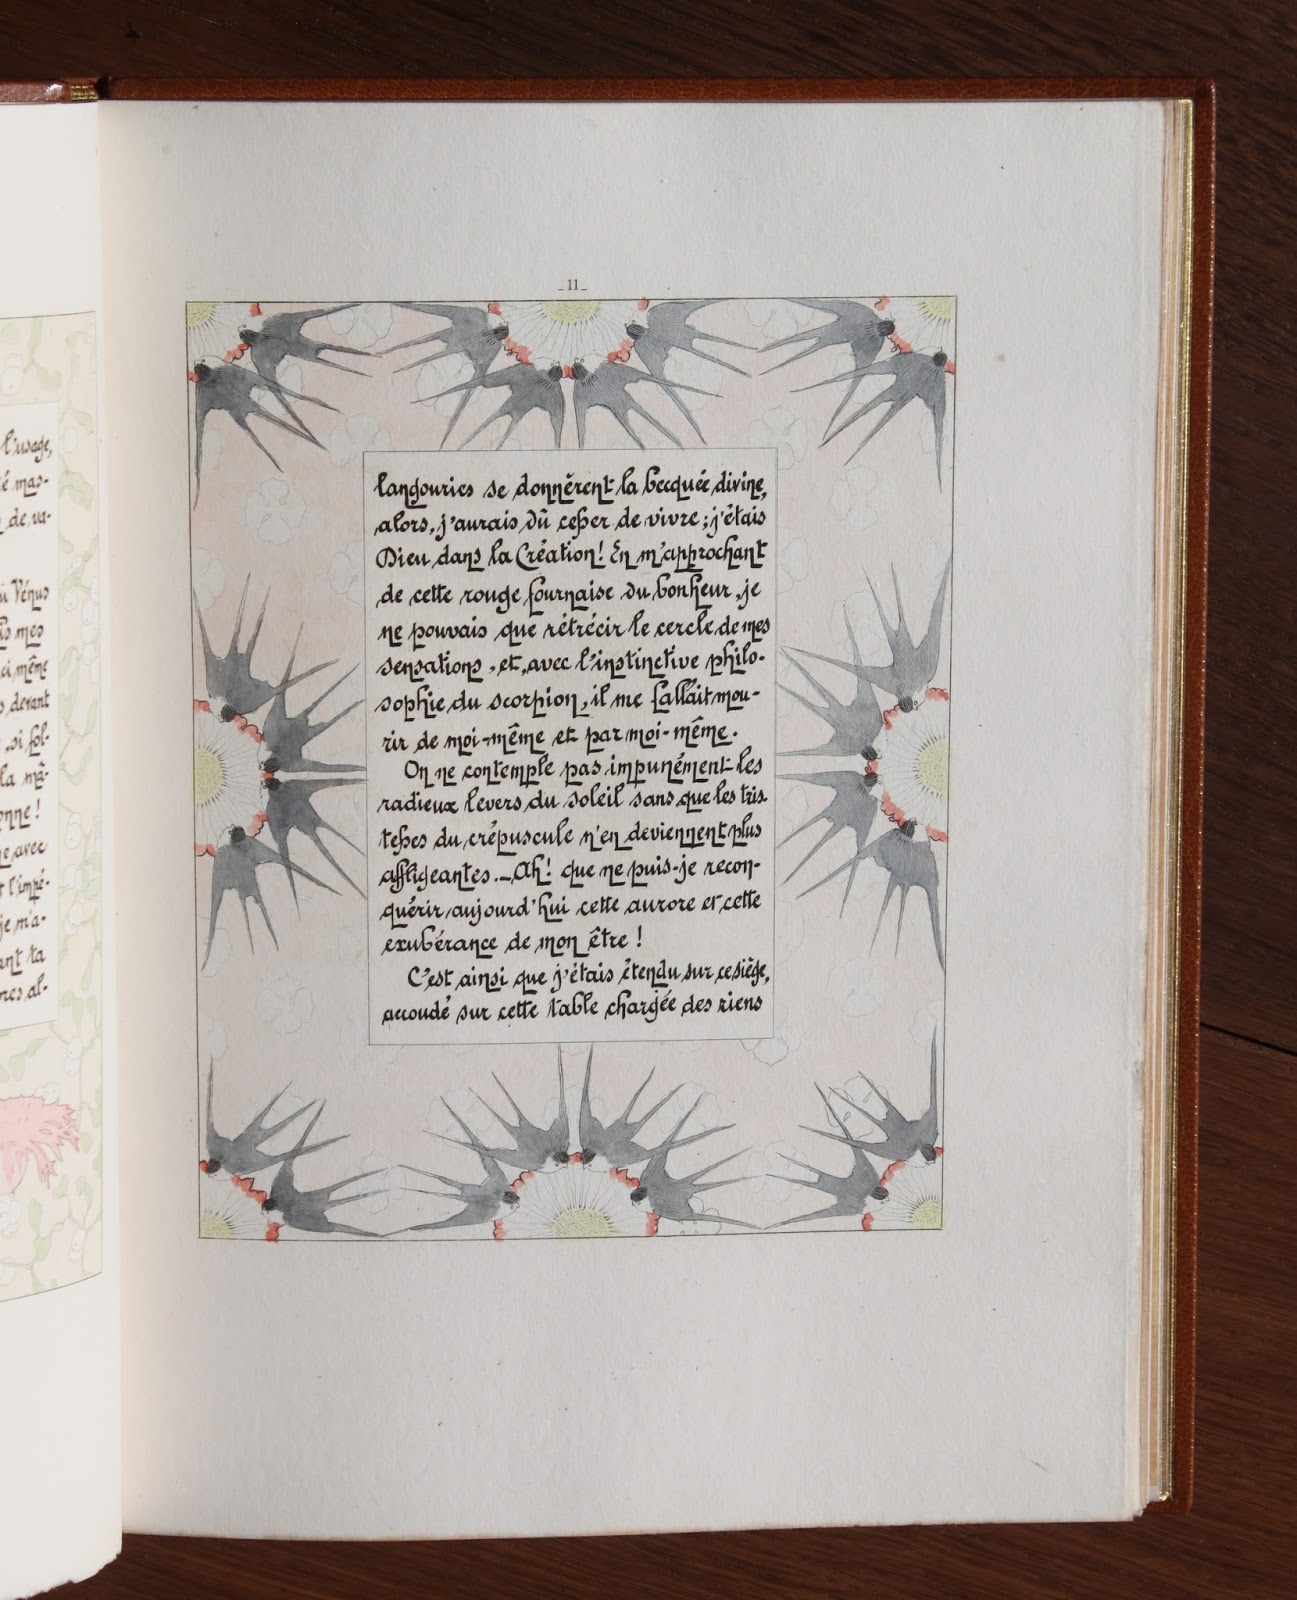 l'usage,
é mas-
de va-
Vénus
mes
ci même
devant
si fol-
la mâ-
onne !
avec
t l'impé-
je m'a-
ant ta
res al-
_ 11 _
langouries se donnèrent la becquée divine,
alors, j'aurais dû cesser de vivre ; j'étais
Dieu dans la Création ! En m'approchant
de cette rouge fournaise du bonheur, je
ne pouvais que rétrécir le cercle de mes
sensations, et, avec l'instinctive philo-
sophie du scorpion, il me fallait mou-
rir de moi-même et par moi-même.
On ne contemple pas impunément les
radieux levers du soleil sans que les tris-
tesses du crépuscule n'en deviennent plus
affligeantes. _ Ah ! que ne puis-je recon-
quérir aujourd'hui cette aurore et cette
exubérance de mon être !
C'est ainsi que j'étais étendu sur ce siège,
accoudé sur cette table chargée des riens